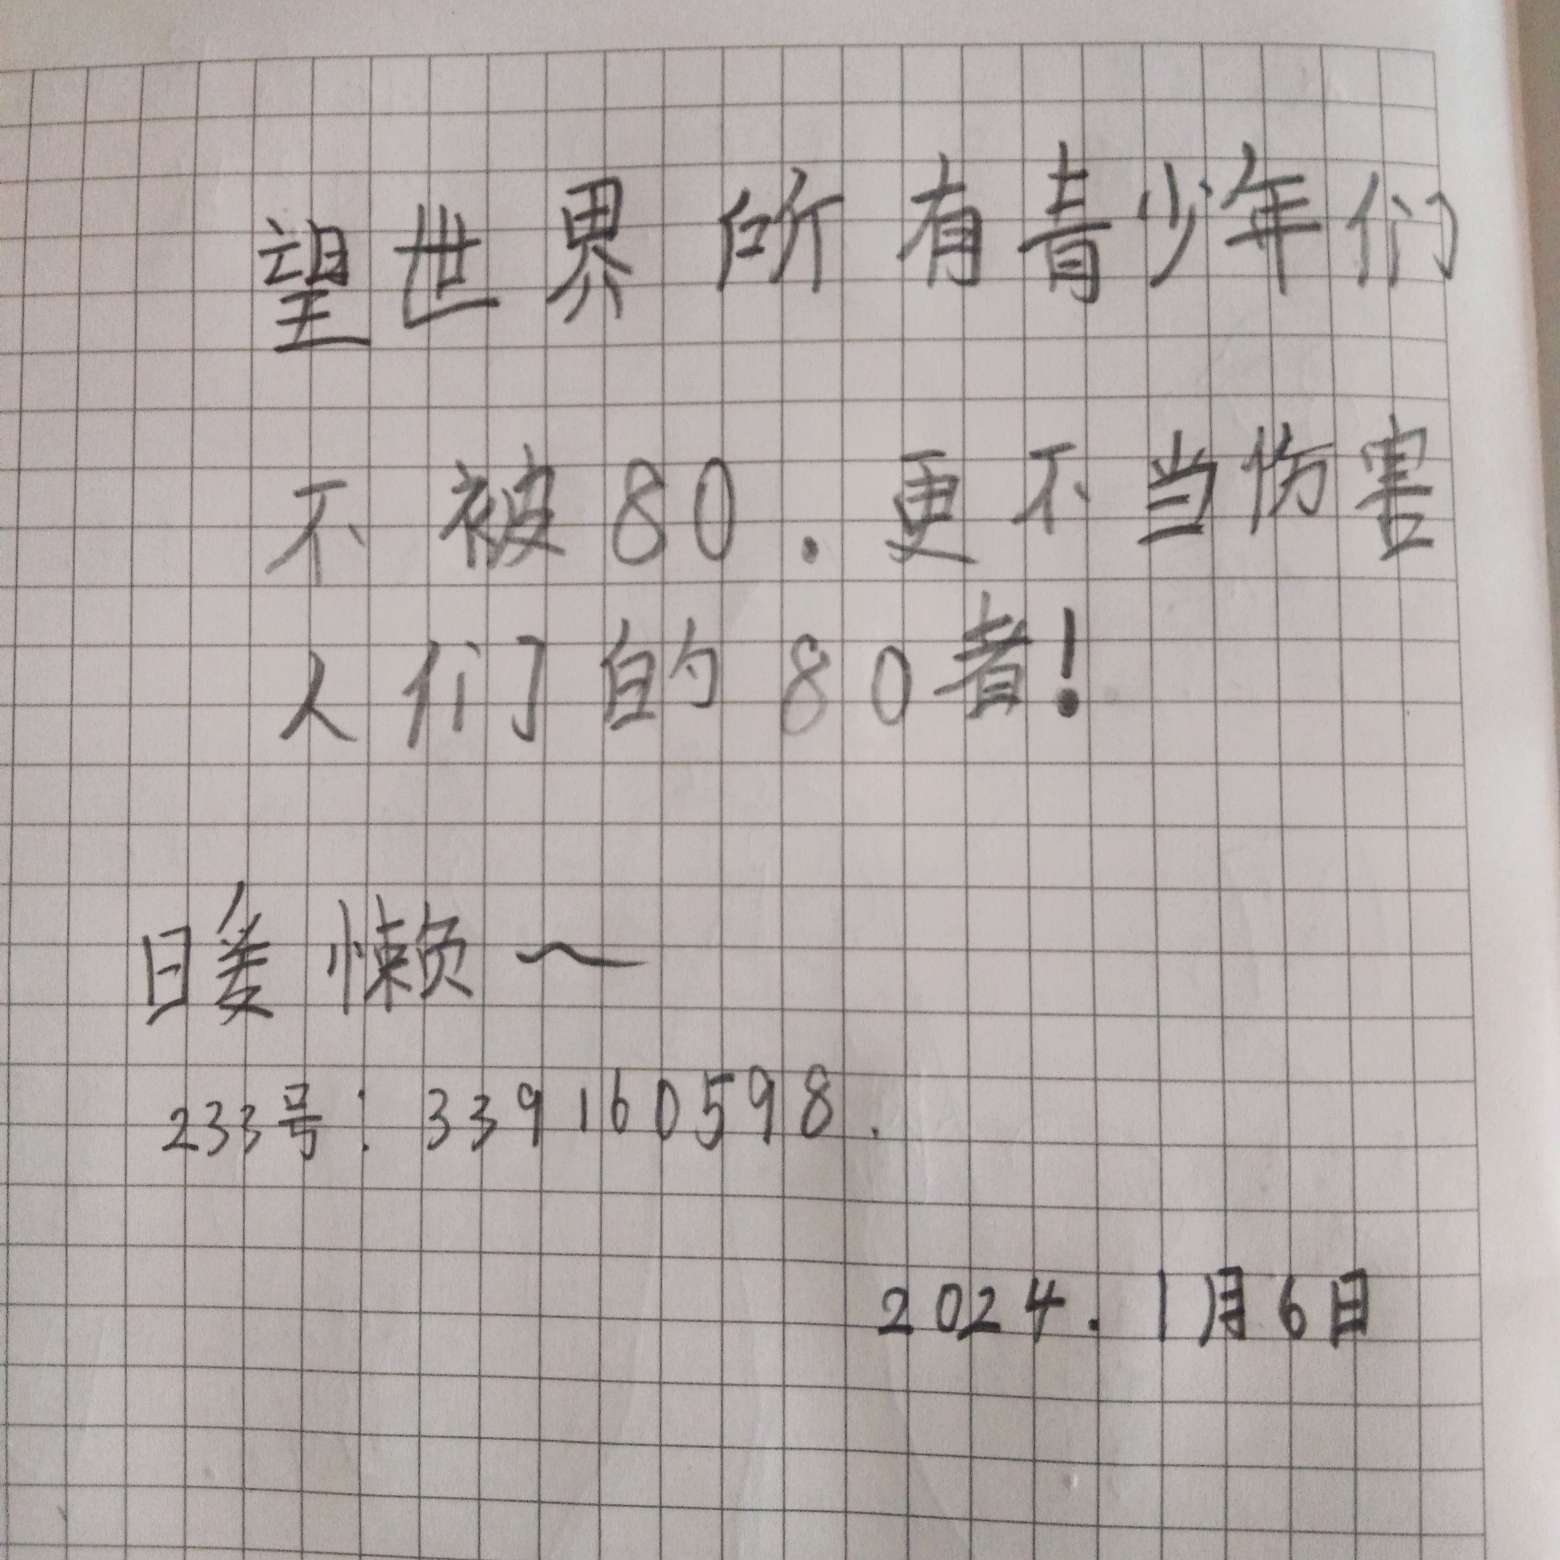 望世界所有青少年们
不被80.更不当伤害
人们的80者!
懒~
233号:339160598.
2024.1月6日